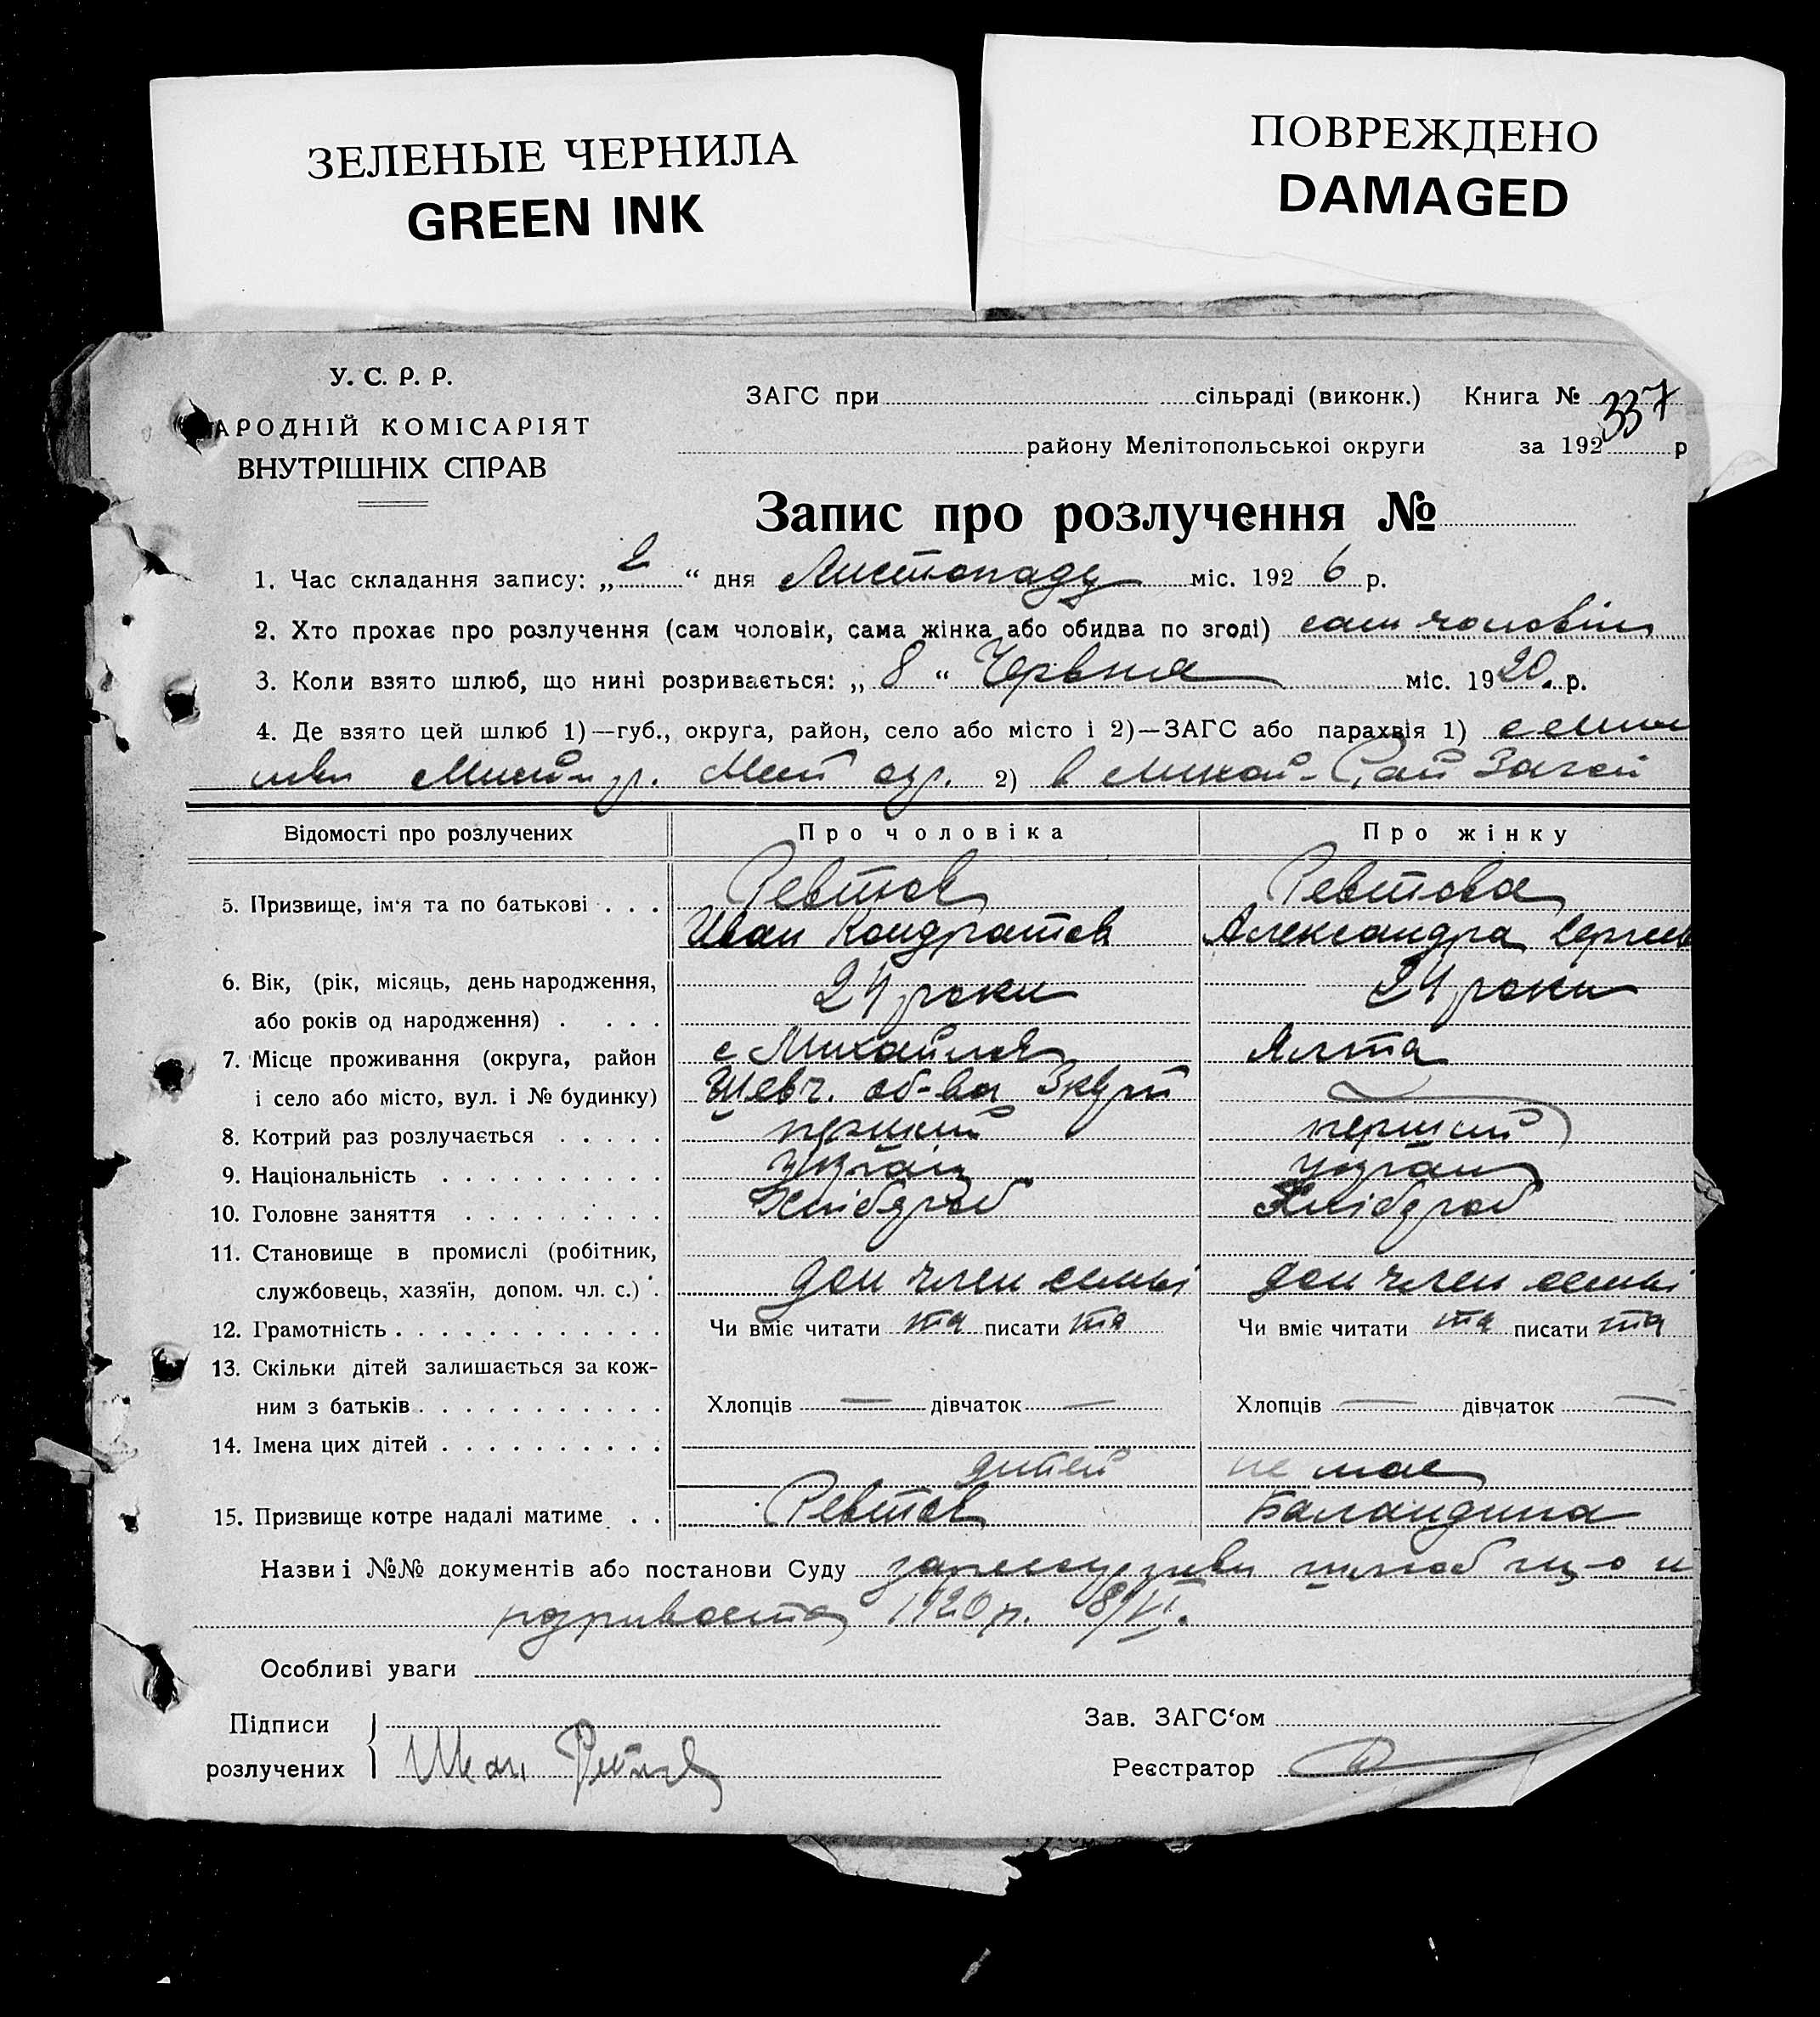 ЗЕЛЕНЫЕ ЧЕРНИЛА
GREEN INK
ПОВРЕЖДЕНО
DAMAGED
У. С. Р. Р.
АРОДНІЙ КОМІСАРІЯТ
ВНУТРІШНІХ СПРАВ
ЗАГС при сільраді (виконк.) Книга № 337
району Мелітопольської округи за 192 р
Запис про розлучення №
1. Час складання запису: „2“ дня Листопаду міс. 1926 р.
2. Хто прохає про розлучення (сам чоловік, сама жінка або обидва по згоді) сам чоловік
3. Коли взято шлюб, що нині розривається: „8“ Червня міс. 1920 р.
4. Де взято цей шлюб 1)—губ., округа, район, село або місто і 2)—ЗАГС або парахвія 1)
2) в
Відомості про розлучених
Про чоловіка
Про жінку
5. Призвище, ім‘я та по батькові . . . Ревтов Ревтова
Иван Кондратов Александра Сергеев
6. Вік, (рік, місяць, день народження, 24 роки 24 роки
або років од народження) . . . .
7. Місце проживання (округа, район с Михайловка Ялта
і село або місто, вул. і № будинку) Шевч. об-ва
8. Котрий раз розлучається . . . . . перший перший
9. Національність . . . . . . . . . . Украін Украін
10. Головне заняття . . . . . . . . . Хлібороб Хлібороб
11. Становище в промислі (робітник,
службовець, хазяїн, допом. чл. с.) . доп член семьі доп член семьі
12. Грамотність . . . . . . . . . . . . Чи вміє читати та писати та Чи вміє читати та писати та
13. Скільки дітей залишається за кож-
ним з батьків . . . . . . . . . . . Хлопців — дівчаток — Хлопців — дівчаток —
14. Імена цих дітей . . . . . . . . . .
дитей не має
15. Призвище котре надалі матиме . . Ревтов Баландина
Назви і №№ документів або постанови Суду шлюб що
1920 р. 8/VI.
Особливі уваги
Підписи
розлучених
Иван
Зав. ЗАГС‘ом
Реєстратор